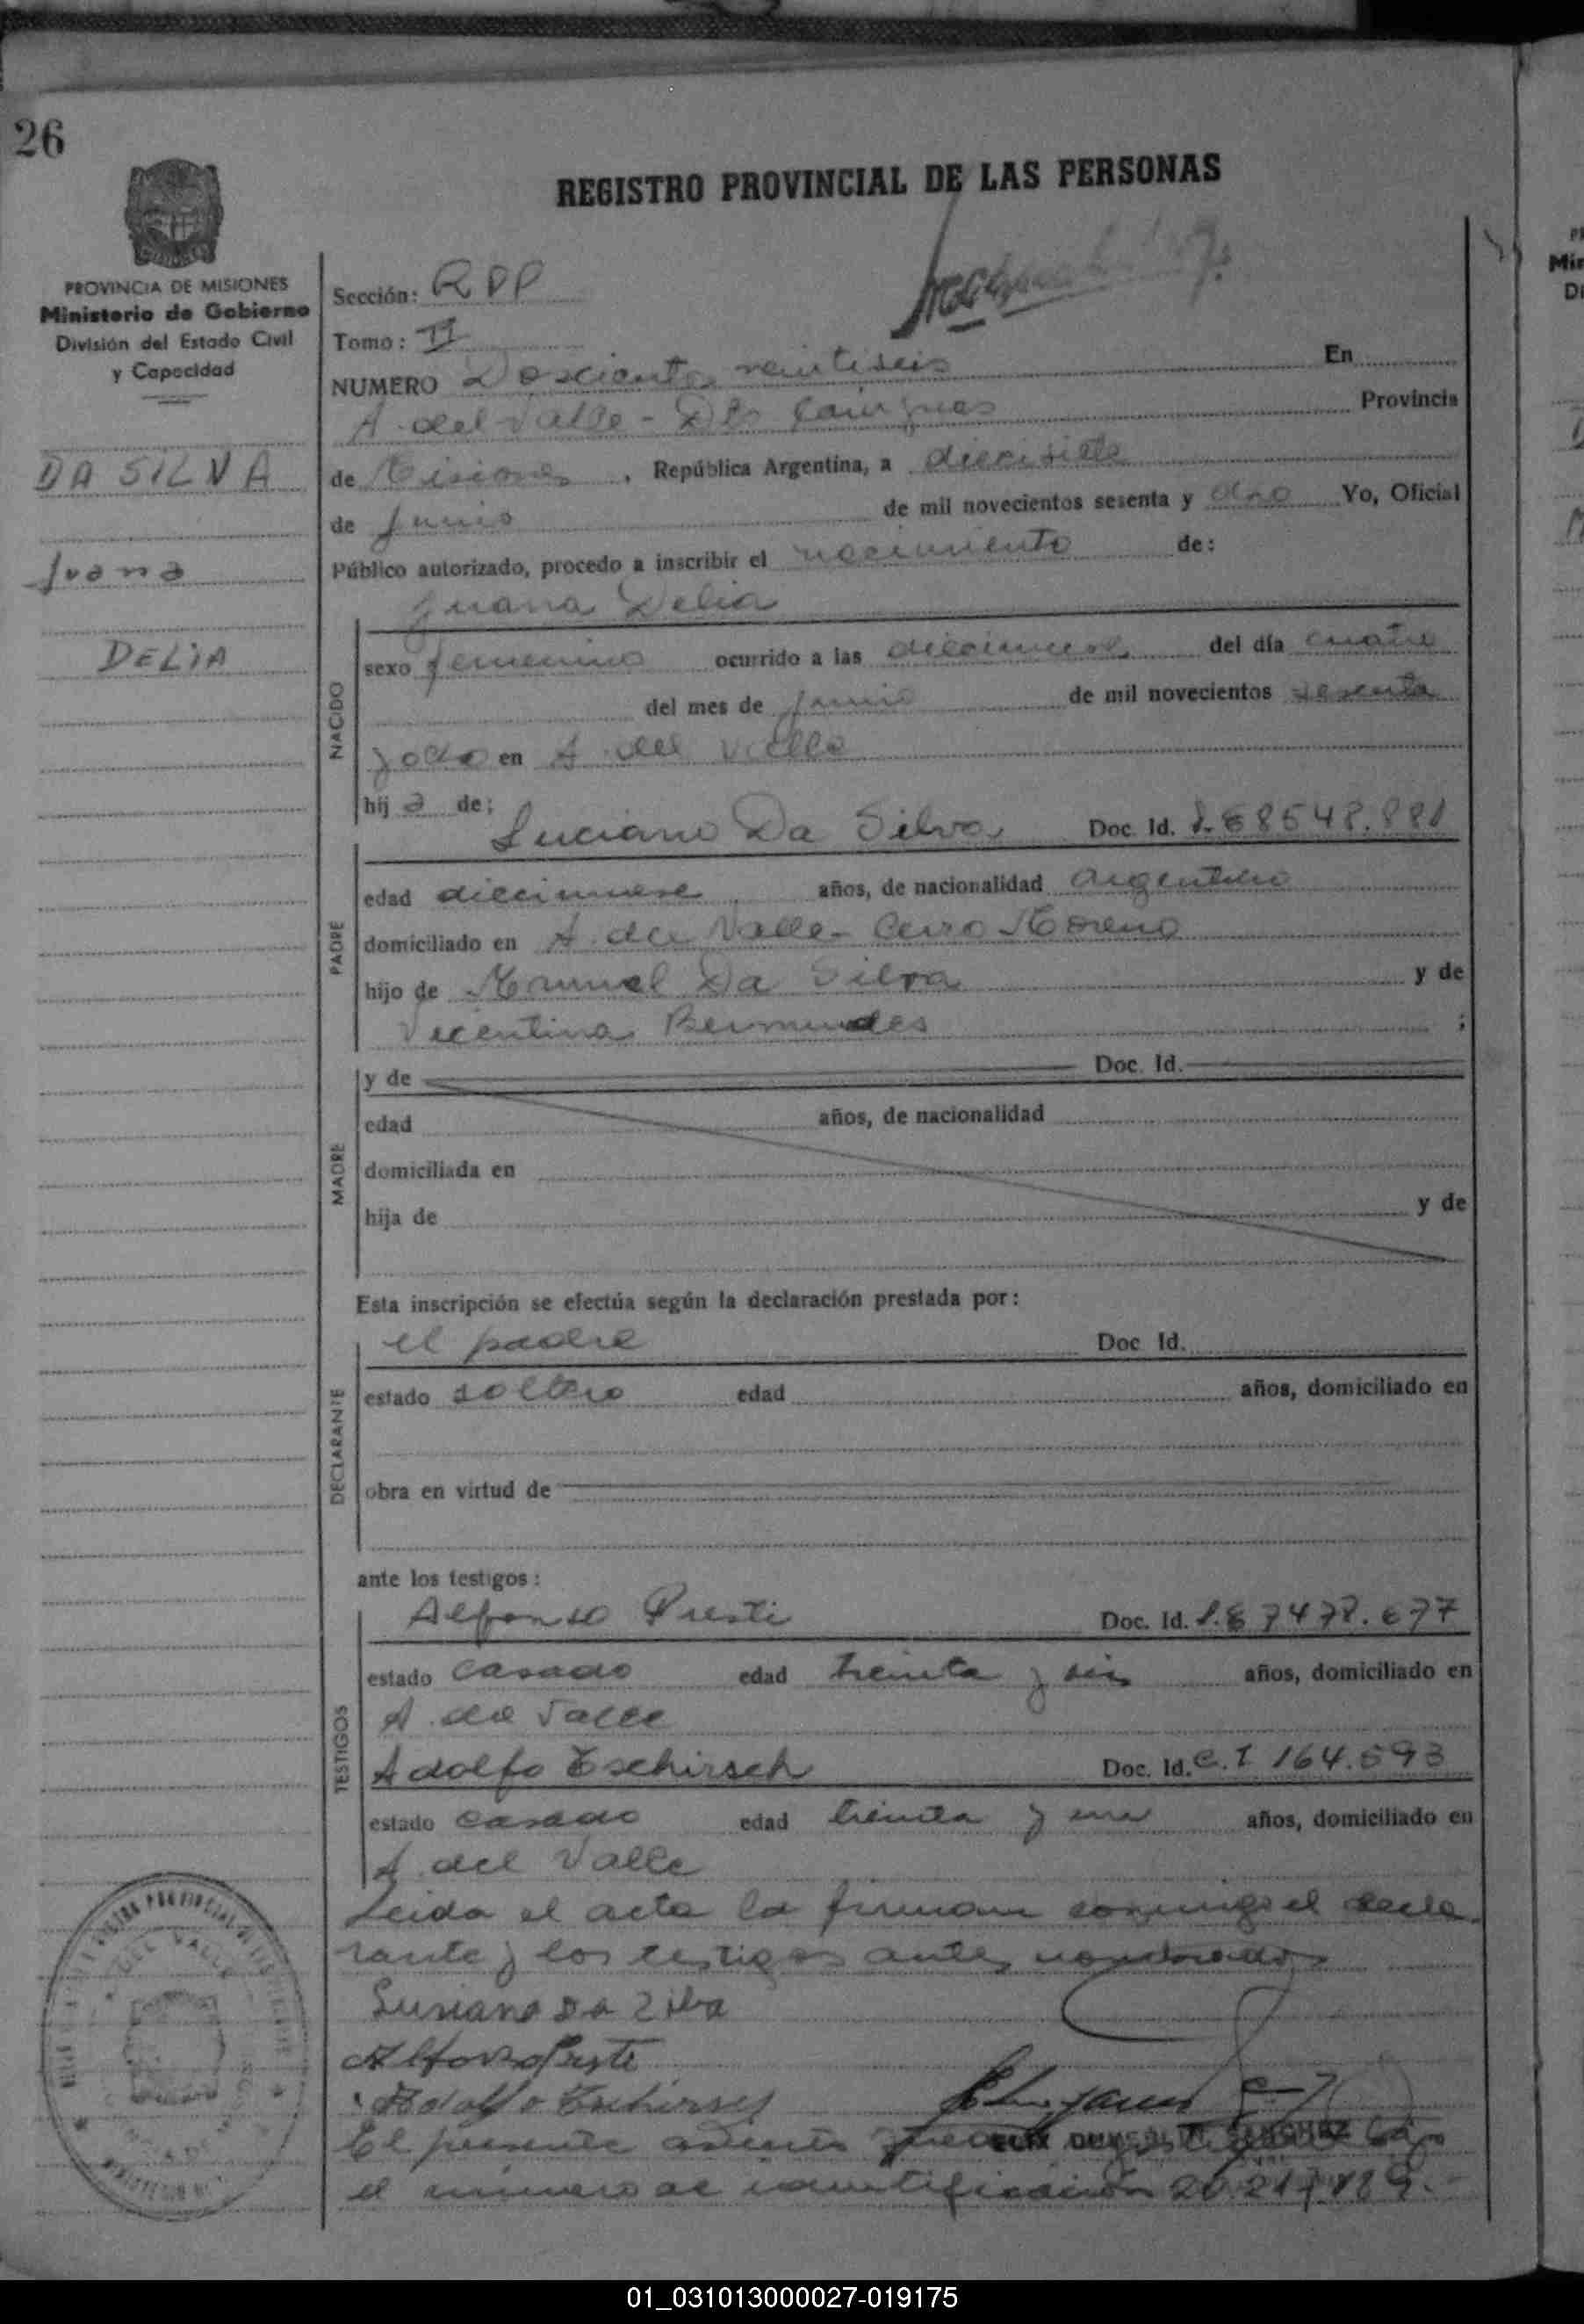 26
REGISTRO PROVINCIAL DE LAS PERSONAS
PROVINCIA DE MISIONES
Ministerio de Gobierno
División del Estado Civil
y Capacidad
DA SILVA
Juana
DELIA
Sección: RPP
Tomo: II
NUMERO Doscientos veintiseis En
A. del Valle - Dto Cainguas Provincia
de Misiones, República Argentina, a diecisiete
de Junio de mil novecientos sesenta y ocho Yo, Oficial
Público autorizado, procedo a inscribir el nacimiento de:
Juana Delia
NACIDO
sexo femenino ocurrido a las diecinueve del día cuatro
del mes de Junio de mil novecientos sesenta
y ocho en A. del Valle
hija de:
Luciano Da Silva Doc. Id.
PADRE
edad diecinueve años, de nacionalidad argentino
domiciliado en A. del Valle - Cerro Moreno
hijo de Manuel Da Silva y de
Vicentina Bermudes ;
MADRE
y de Doc. Id.
edad años, de nacionalidad
domiciliada en
hija de y de
Esta inscripción se efectúa según la declaración prestada por:
el padre Doc. Id.
DECLARANTE
estado soltero edad años, domiciliado en
obra en virtud de
ante los testigos:
Alfonso Presti Doc. Id.
TESTIGOS
estado casado edad treinta y seis años, domiciliado en
A. del Valle
Adolfo Eschirsch Doc. Id. C.I 164.593
estado casado edad treinta y años, domiciliado en
A. del Valle
Leida el acta la firman conmigo el decla
rante y los testigos antes nombrados
Lusiano Da Zilba
Alfonso Preste
Adolfo Eschirsch
El presente asiento bajo
el número de identificación
01_031013000027-019175